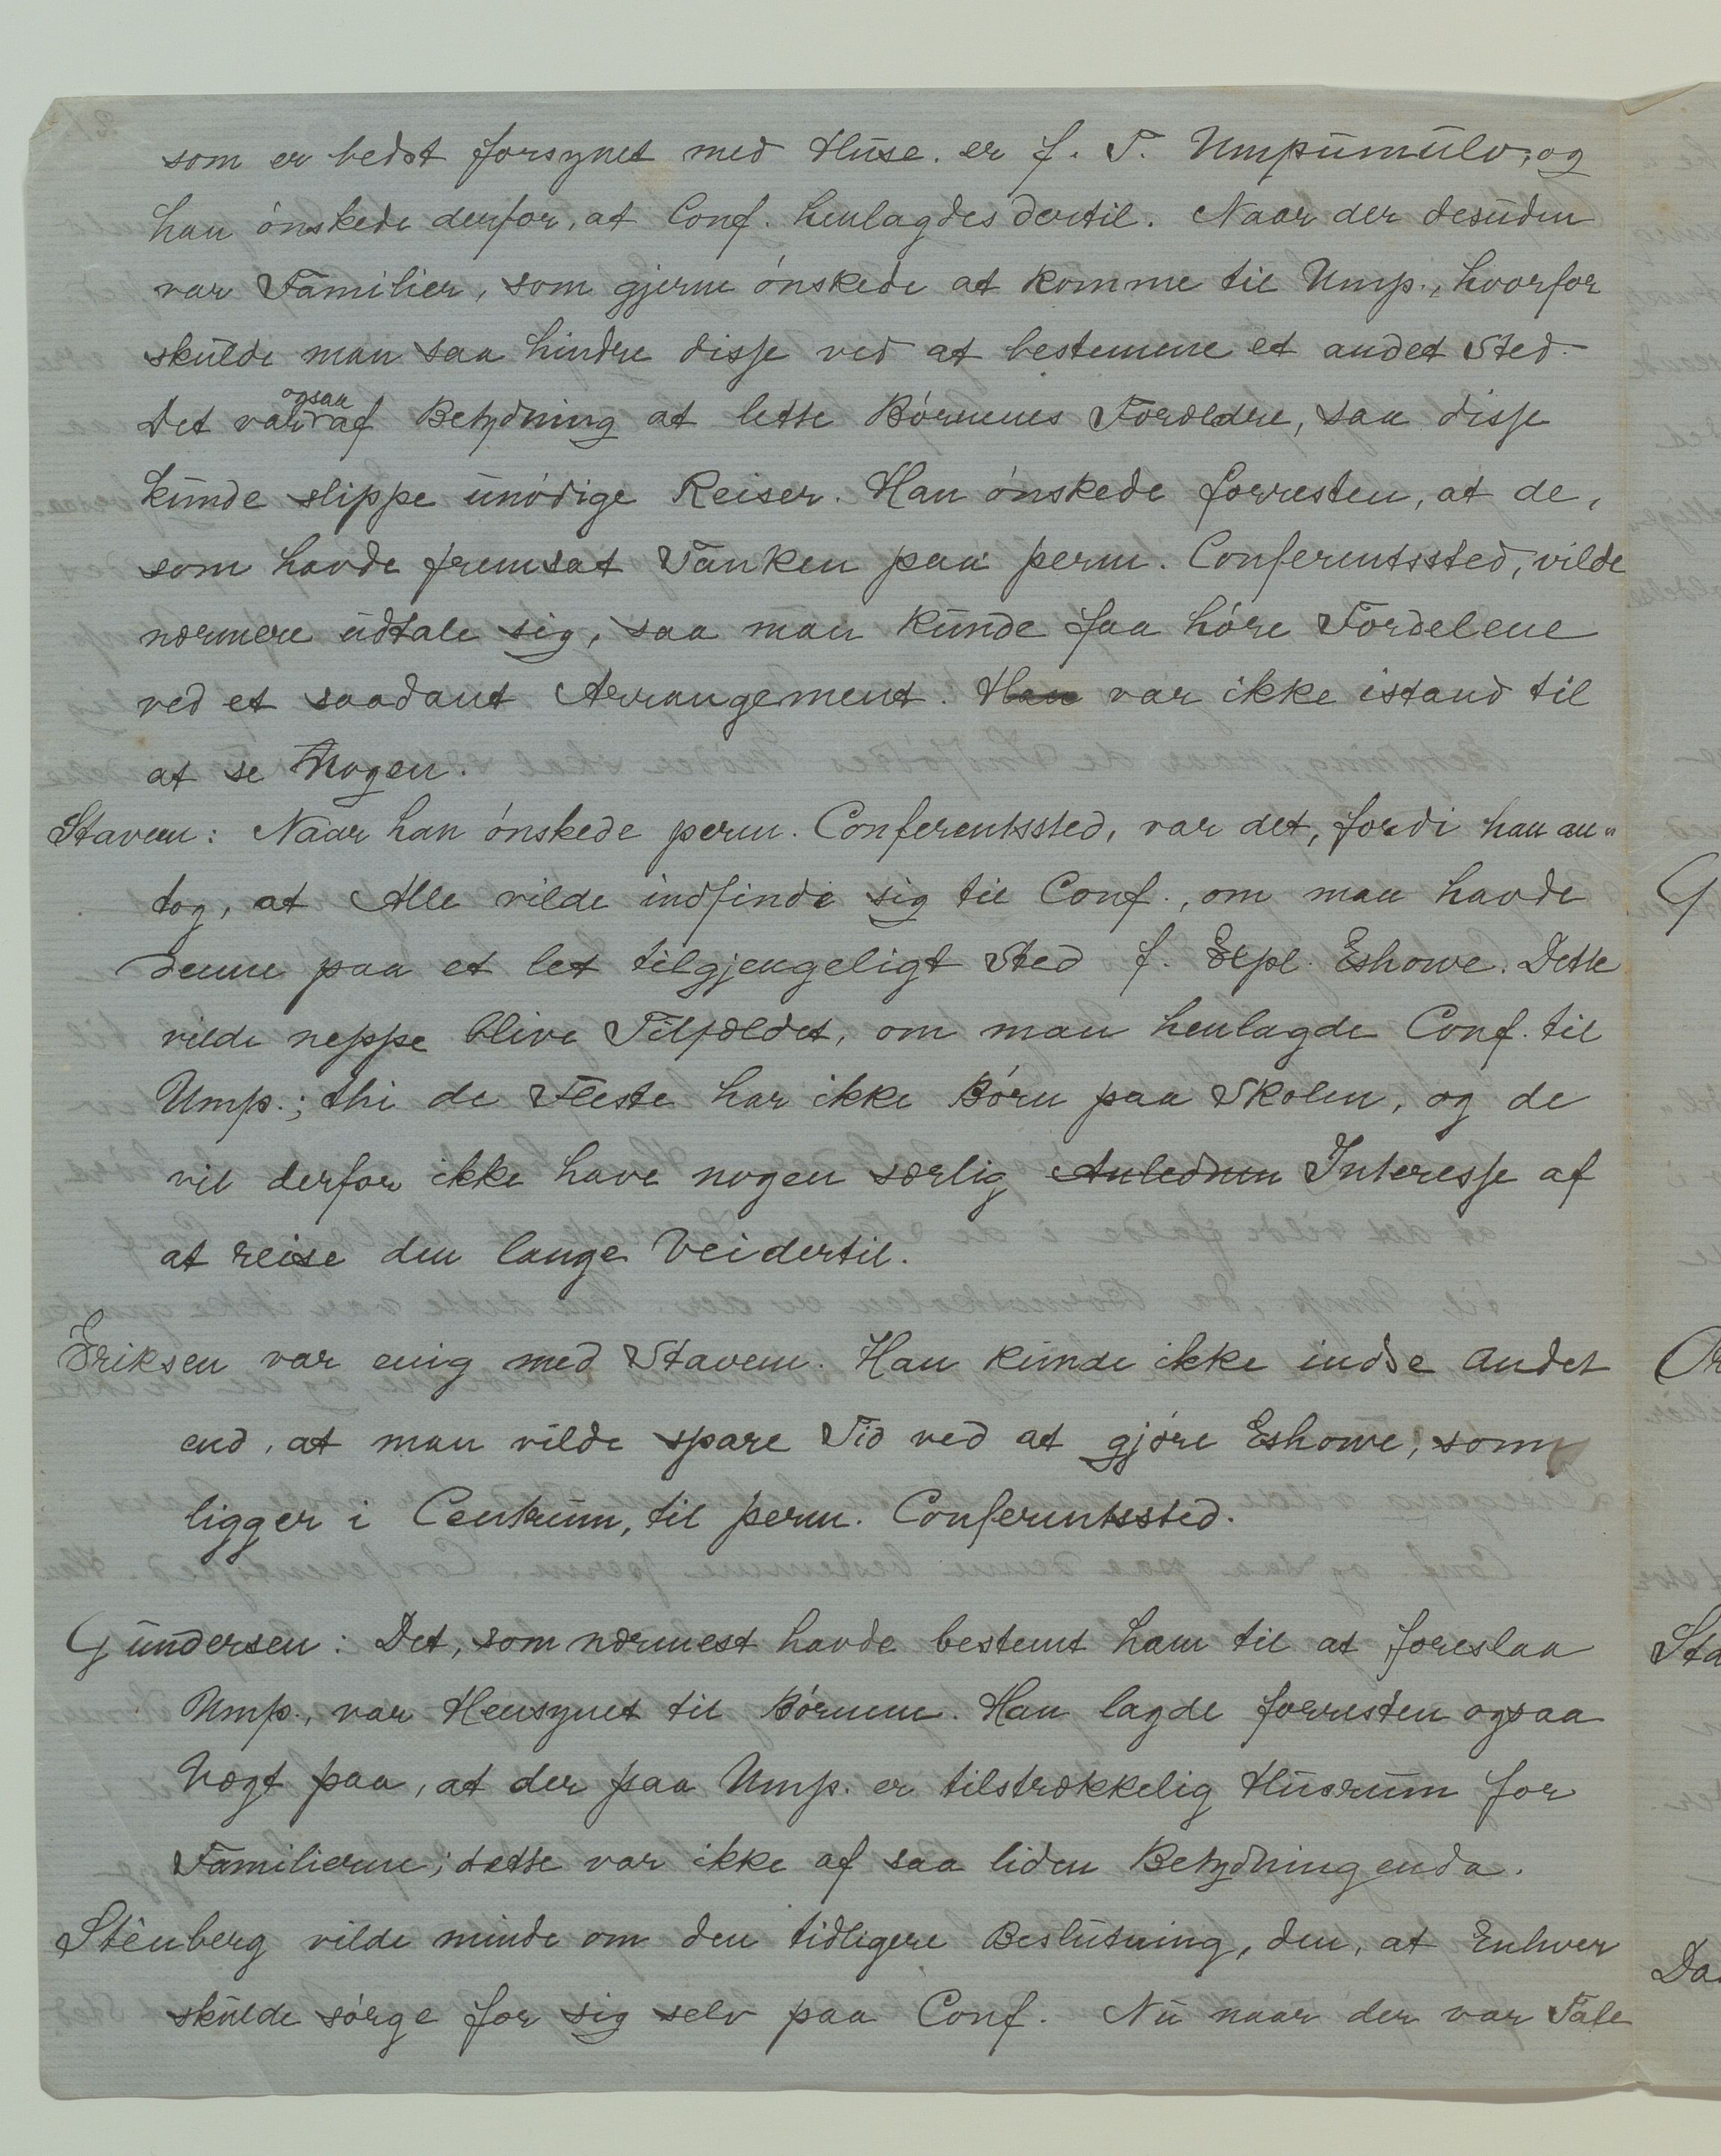 som er bedst forsynet med Huse. er f. T. Umpumulo, og
han ønskede derfor, at Conf. henlagdes dertil. Naar der desuden
var Familier, som gjerne ønskede at komme til Ump., hvorfor
skulde man saa hindre disse ved at bestemme et andet Sted.
Det var ogsaa af Betydning at lette Børnenes Forældre, saa disse
kunde slippe unødige Reiser. Han ønskede forresten, at de,
som havde fremsat Tanken paa perm. Conferentssted, vilde
nærmere udtale sig, saa man kunde faa høre Fordelene
ved et saadant Arrangement. Han var ikke istand til
at se Nogen.
Stavem: Naar han ønskede perm. Conferentssted, var det, fordi han an-
tog, at Alle vilde indfinde sig til Conf., om man havde
denne paa et let tilgjengeligt Sted f. Expl. Eshowe. Dette
vilde neppe blive Tilfældet, om man henlagde Conf. til
Ump.; thi de Fleste har ikke Børn paa Skolen, og de
vil derfor ikke have nogen særlig Anlednin Interesse af
at reise den lange Vei dertil.
Eriksen var enig med Stavem. Han kunde ikke indse andet
end, at man vilde spare Tid ved at gjøre Eshowe, som
ligger i Centrum, til perm. Conferentssted.
Gundersen: Det, som nærmest havde bestemt ham til at foreslaa
Ump., var Hensynet til Børnene. Han lagde forresten ogsaa
Vægt paa, at der paa Ump. er tilstrækkelig Husrum for
Familierne; dette var ikke af saa liden Betydning enda.
Stenberg vilde minde om den tidligere Beslutning, den, at Enhver
skulde sørge for sig selv paa Conf. Nu naar der var Tale